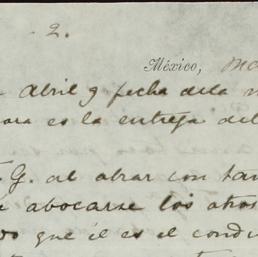 2.
México,
Abril y fecha de la
es la entrega del
G. al obrar con tan
abocarse los años
que él es el